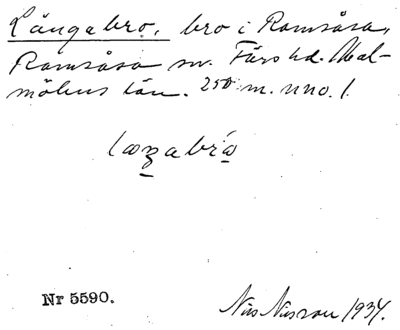 Långabro, bro i Ramsåsa,
Ramsåsa sn. Färs hd. Mal-
möhus län. 250 m. nno. 1.
Nr 5590.
Nils Nilsson 1934.